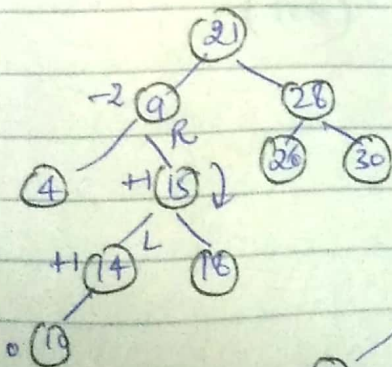 21
-2 9 28
R
4 +1 15 26 30
L
+1 14 18
0 10